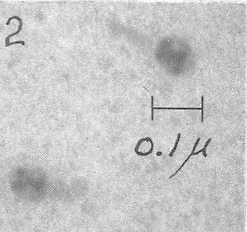 2
0.1 μ